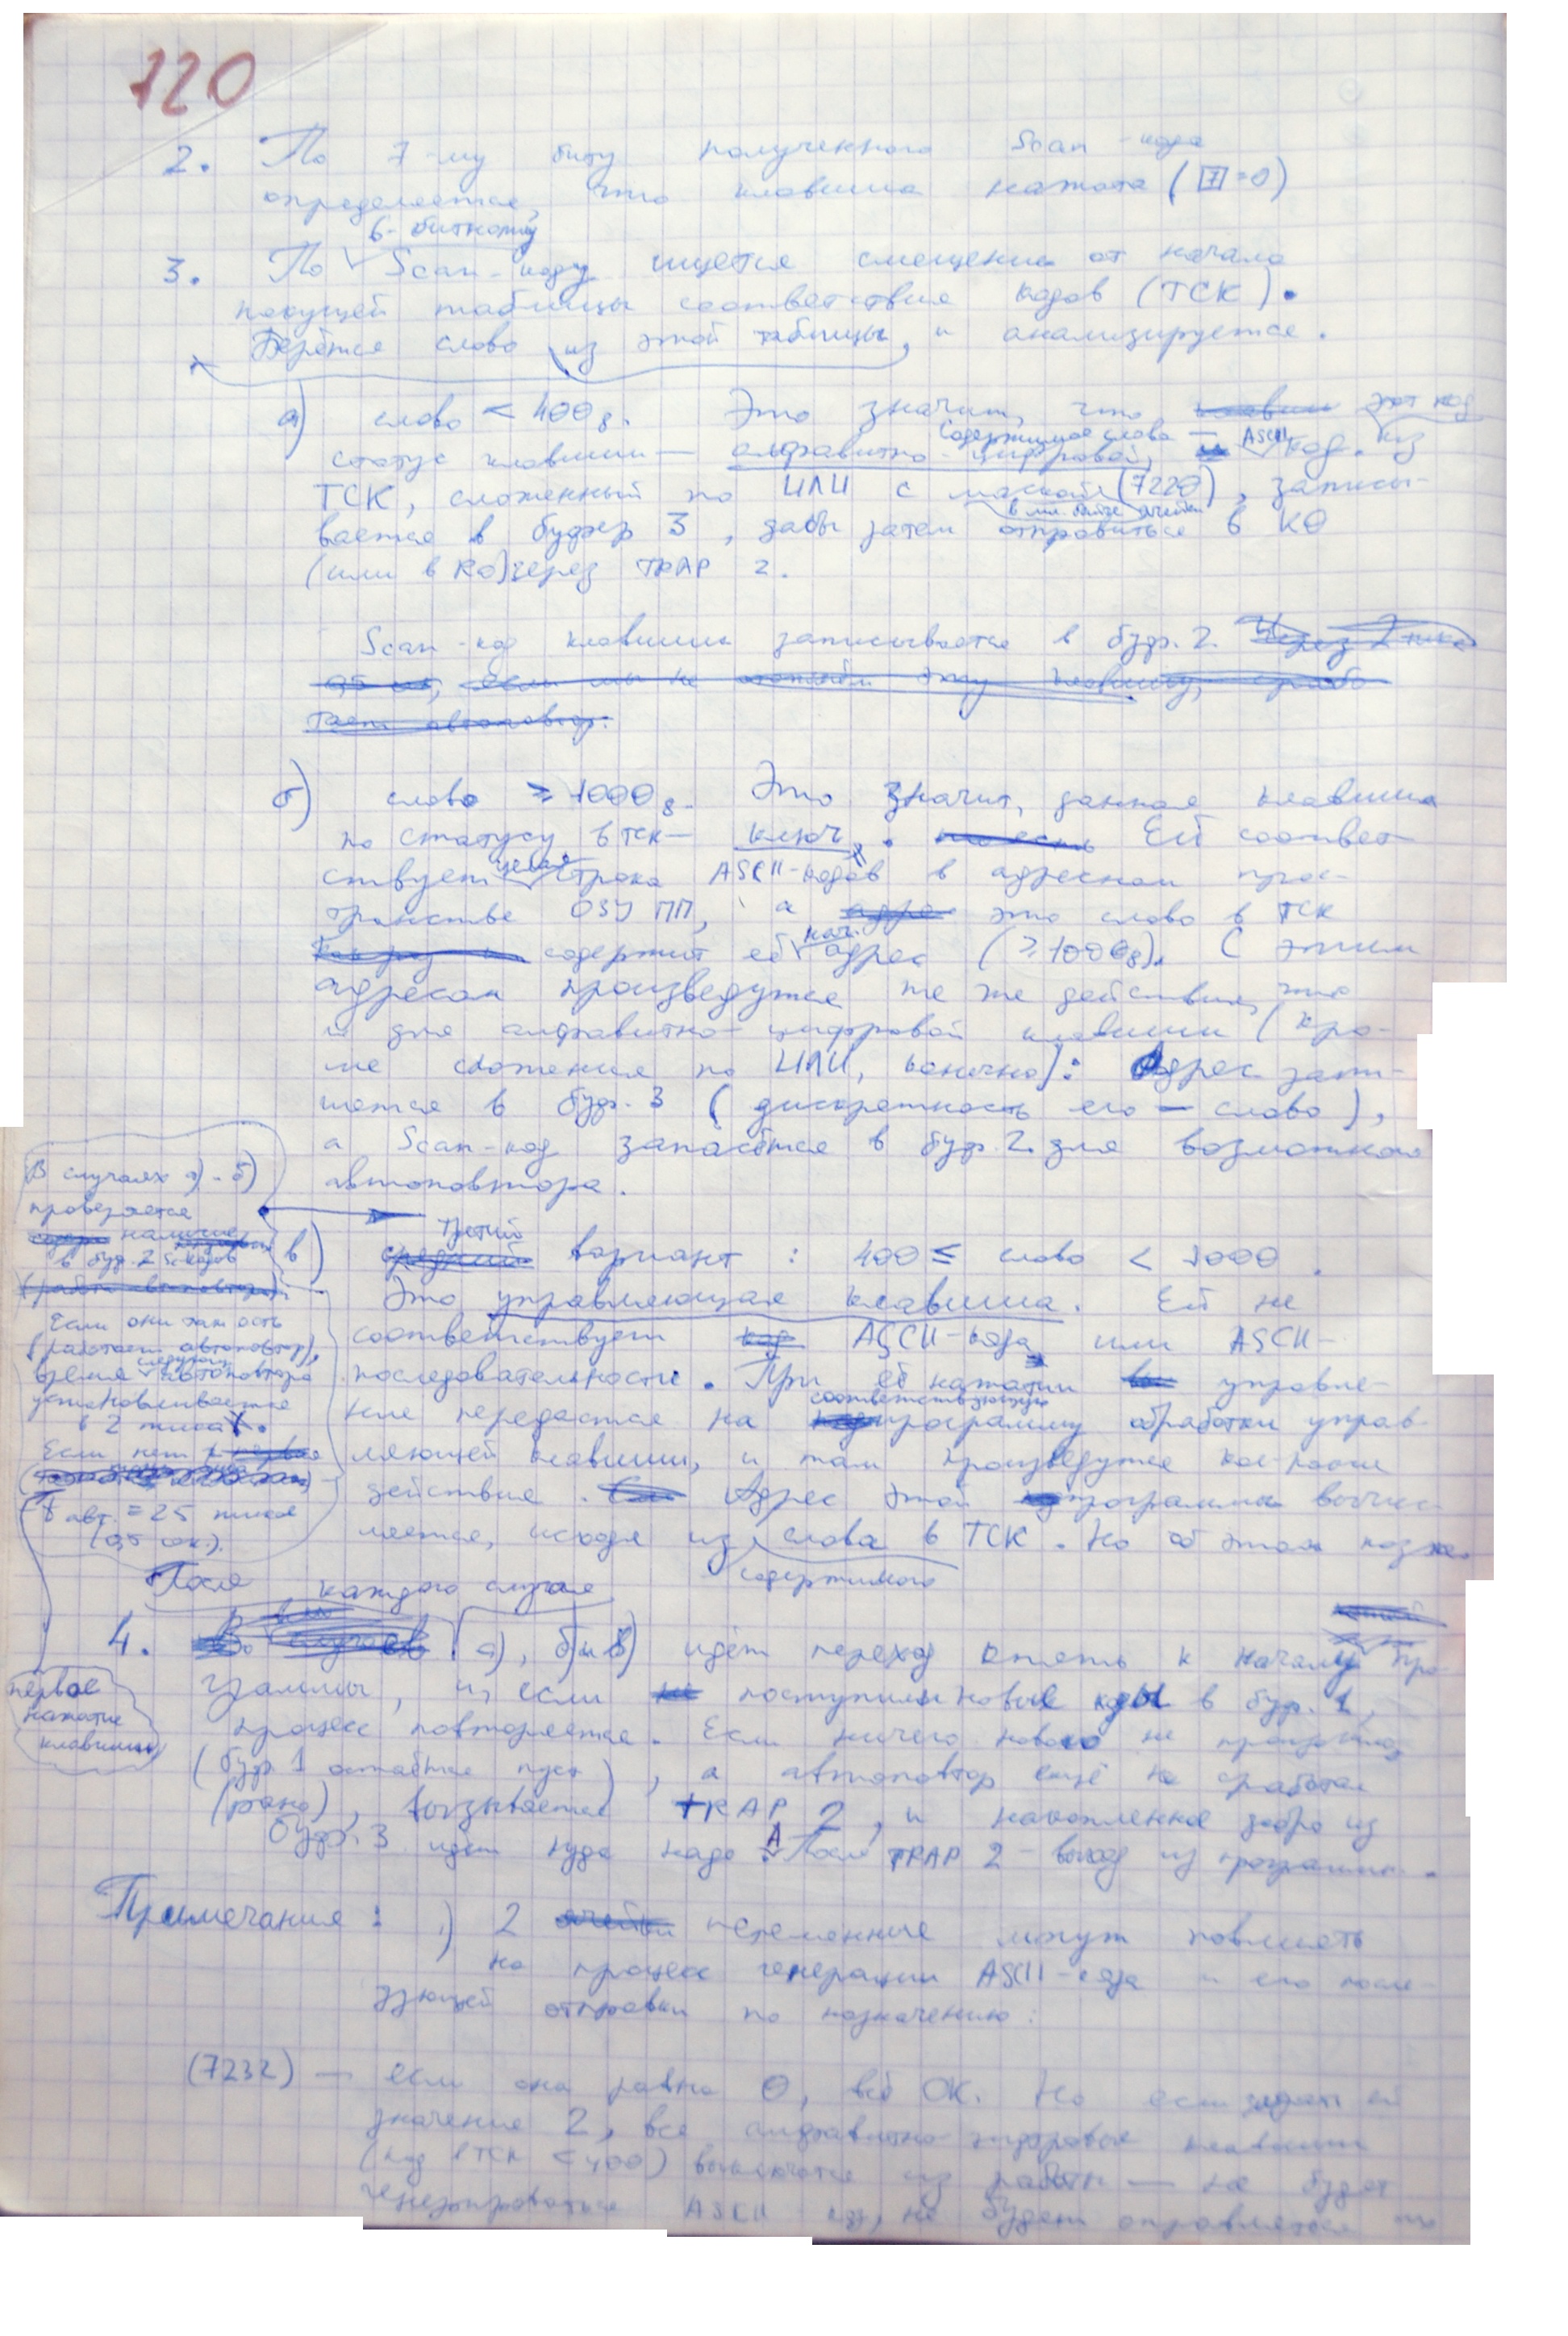 120
2. По 7-му биту полученного Scan-кода
определяется, что клавиша нажата (7=0)
6-битному
3. По Scan-коду ищется смещение от начала
текущей таблицы соответствия кодов (ТСК).
Берётся слово из этой таблицы, и анализируется.
а) слово < 400₈. Это значит, что этот код
содержимое слова — ASCII из
статус клавиши — алфавитно-цифровой, код.
ТСК, сложенный по ИЛИ с маской (7220), записы-
в мл. байте ячейки
вается в буфер 3, дабы затем отправиться в К0
(или в R0) через TRAP 2.
Scan-код клавиши записывается в буф. 2. Через 2 тика
0,5 сек, если мы не отожмём эту клавишу, срабо-
тает автоповтор.
б) слово ≥ 1000₈. Это значит, данная клавиша
по статусу в ТСК — ключ. Ей соответ-
ствует целая строка ASCII-кодов в адресном прос-
транстве ОЗУ ПП, а это слово в ТСК
нач.
как раз и содержит её адрес (≥1000₈). С этим
адресом произведутся те же действия, что
и для алфавитно-цифровой клавиши (кро-
ме сложения по ИЛИ, конечно): Адрес запи-
шется в буф. 3 (дискретность его — слово),
а Scan-код запасётся в буф. 2 для возможного
автоповтора.
В случаях а)-б)
проверяется
наличие
в буф. 2 Sc-кодов
(работа автоповтора).
Если они там есть
(работает автоповтор),
время следующего автоповтора
устанавливается
в 2 тика.
Если нет
t авт. = 25 тиков
(0,5 сек.).
первое
нажатие
клавиши
третий
в) средний вариант : 400 ≤ слово < 1000.
Это управляющая клавиша. Ей не
соответствует код ASCII-кода или ASCII-
последовательности. При её нажатии управле-
соответствующую
ние передастся на программу обработки управ-
ляющей клавиши, и там произведутся кое-какие
действия. Адрес этой программы вычис-
ляется, исходя из слова в ТСК. Но об этом позже.
содержимого
После каждого случая
4. а), б) и в) идёт переход опять к началу про-
граммы, и, если поступили новые коды в буф. 1,
процесс повторяется. Если ничего нового не произошло
(буф. 1 остаётся пуст), а автоповтор ещё не сработал
(рано), вызывается TRAP 2, и накопленное добро из
буф. 3 идёт куда надо. А после TRAP 2 - выход из программы.
Примечание: 1) 2 ячейки переменные могут повлиять
на процесс генерации ASCII-кода и его после-
дующей отправки по назначению:
(7232) — если она равна 0, всё ОК. Но если задать ей
значение 2, все алфавитно-цифровые клавиши
(код в ТСК < 400) выключатся из работы — не будет
генерироваться ASCII код, не будет отправляться по